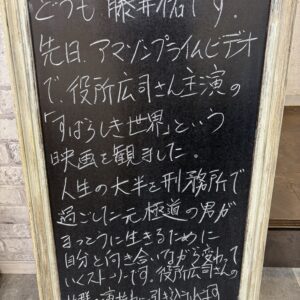 どうも 藤井佑です.
先日.アマゾンプライムビデオ
で.役所広司さん主演の
「すばらしき世界」という
映画を観ました。
人生の大半を刑務所で
過ごした元極道の男が
まっとうに生きるために
自分と向き合いながら変わって
いくストーリーです。役所広司さんの
引き込まれます